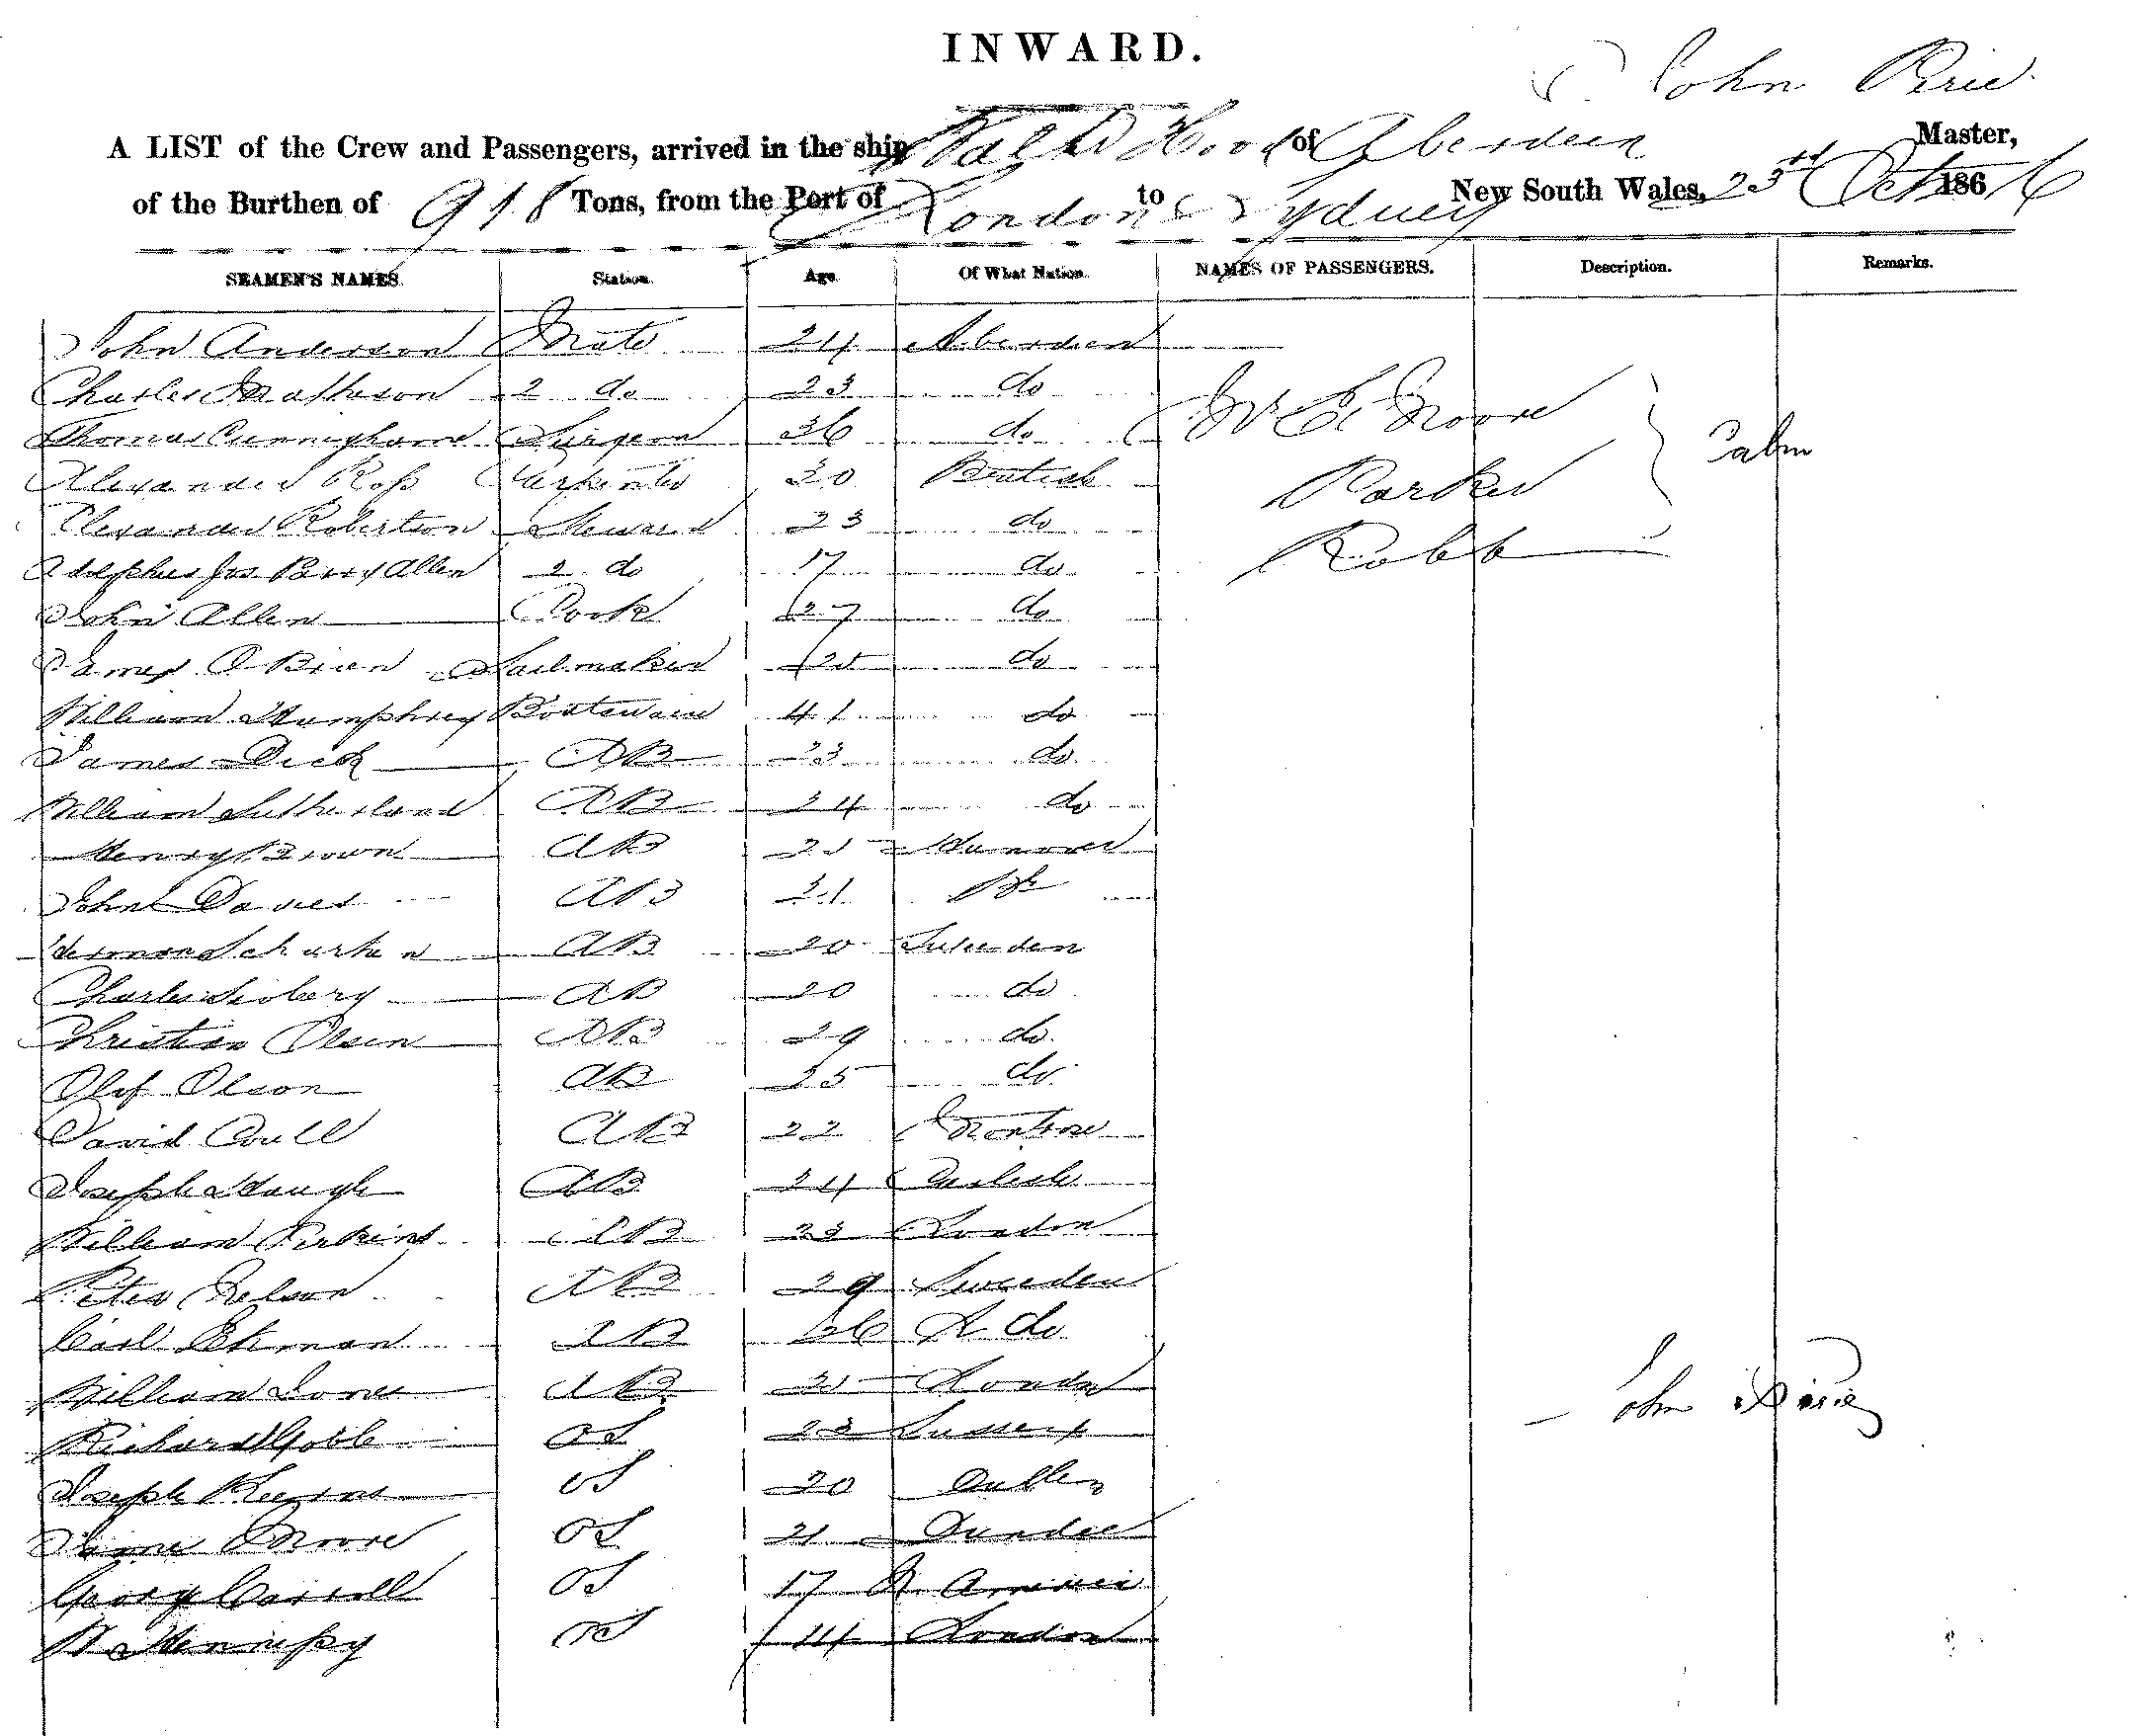 INWARD.
John Pirie
A LIST of the Crew and Passengers, arrived in the ship Walter Hood of Aberdeen Master,
of the Burthen of 918 Tons, from the Port of London to Sydney New South Wales, 23rd Octr 1866
SEAMEN'S NAMES. Station. Age. Of What Nation. NAMES OF PASSENGERS. Description. Remarks.
John Anderson Mate 24 Aberdeen
Charles Matheson 2 do 23 do Mr E Moore
Thomas Cunninghame Surgeon 36 do Cabin
Alexander Ross Carpenter 30 British Parker
Alexander Robertson Steward 23 do
Adolphus Jas Barry Allen 2 do 17 do Robb
John Allen Cook 27 do
James O Brien Sailmaker 25 do
William Humphrey Boatswain 41 do
James Dick AB 23 do
William Sutherland AB 24 do
Henry Brown AB 21 Hanover
John Davies AB 21 Br
AB 20 Sweeden
Charles Sioberg AB 20 do
Christian Olsen AB 29 do
Olof Olson AB 25 do
David Coull AB 22 Montrose
Joseph Haugh AB 24 Carlisle
William Perkins AB 23 London
Peter Nelson AB 29 Sweeden
Carl Ekman AB 26 do
William Jones AB 21 London
John Pirie
Richard Goble OS 23 Sussex
Joseph Keirns OS 20 Dublin
James Moore OS 21 Dundee
George Carroll OS 17 America
W Hennessy OS 14 London